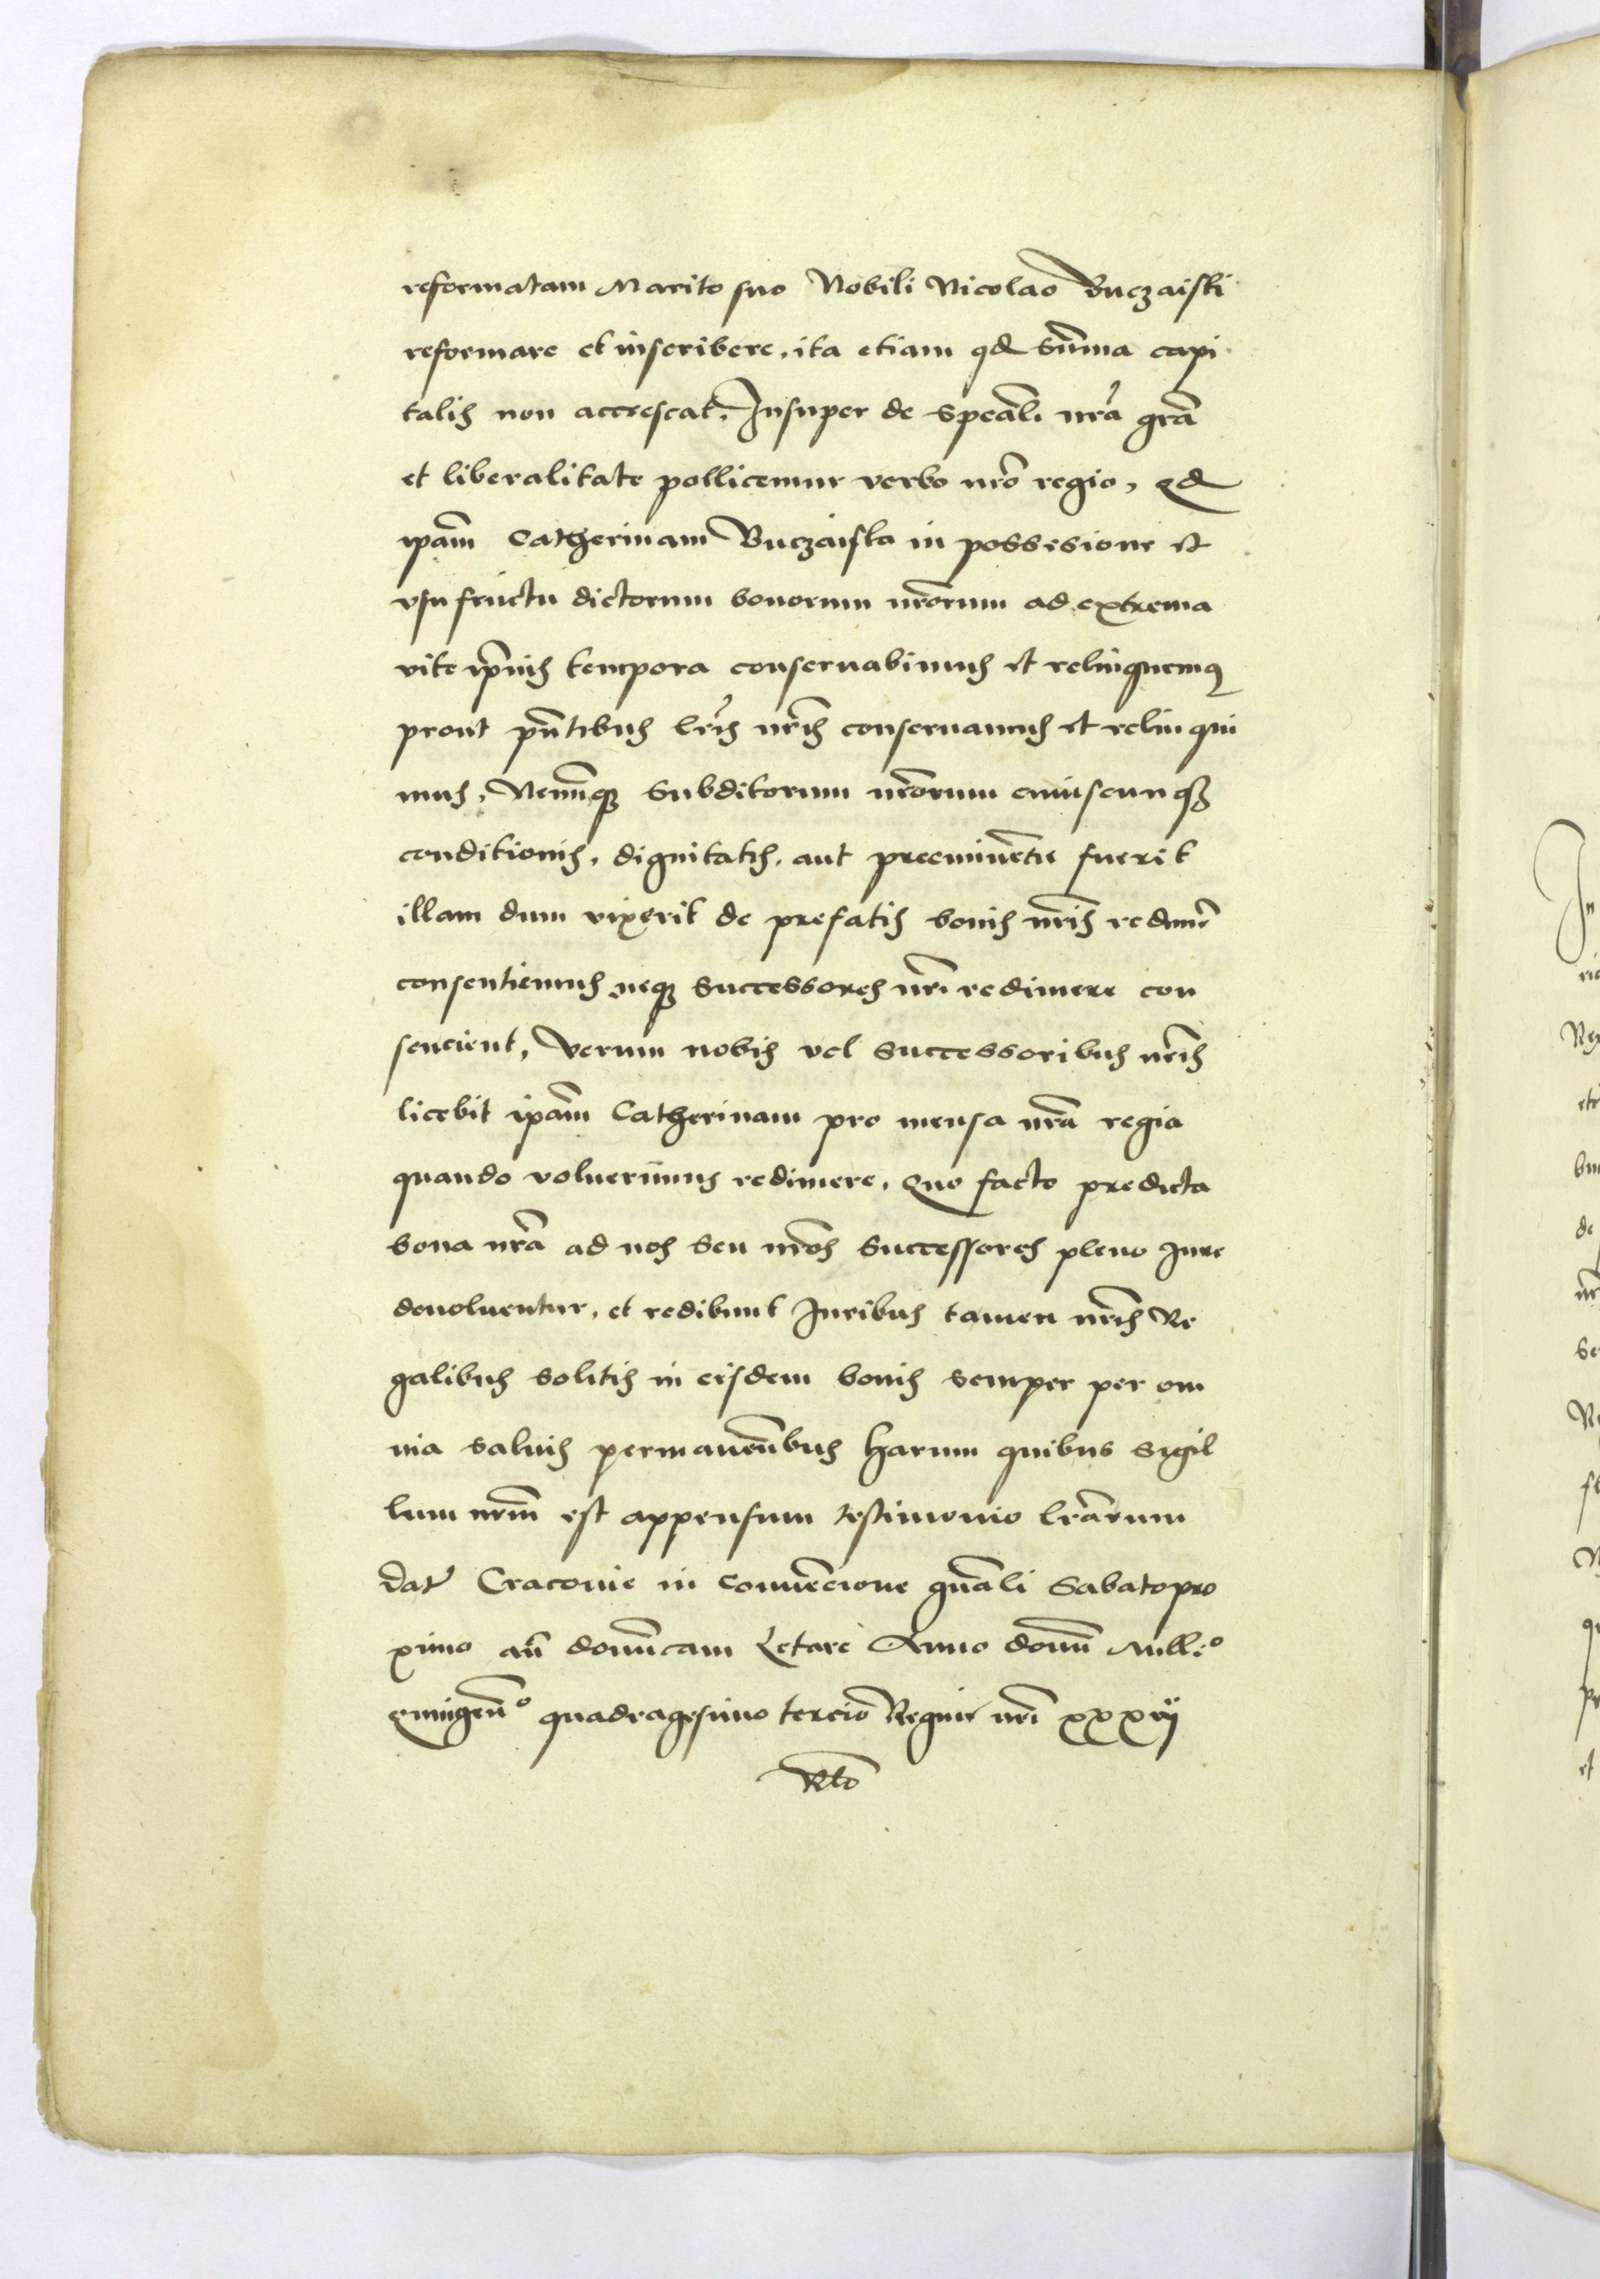 reformatam Marito suo Nobili Nicolao Buczaiski
reformare et inscribere, ita etiam qd Su̅ma capi
talis non accrescat. Insuper de Speâli nrâ grâ
et liberalitate pollicemur verbo nro̅ regio, qd
ipam̅ Catherinam Buczaiska in possesione et
vsufructu dictorum bonorum nro̅rum ad extrema
vite ip̅ius tempora conseruabimus et relinquemus
prout pn̅tibus lr̅is nr̅is conseruamus et relinqui
mus. Nemin̅iq̨ Subditorum nro̅rum cuiuscunq̨
conditionis, dignitatis, aut preemine̅tie fuerit
illam dum vixerit de prefatis bonis nr̅is redimer̅
consentiemus neq̨ Successores nr̅i redimere con
sencient, Verum nobis vel Successoribus nr̅is
licebit ipam̅ Catherinam pro mensa nra̅ regia
quando voluerimus redimere. Quo facto predicta
bona nra̅ ad nos seu nro̅s Successores pleno Iure
deuoluentur, et redibunt Iuribus tamen nr̅is Re
galibus solitis in eisdem bonis semper per om
nia saluis permanen̅bus Harum quibus Sigil
lum nrm̅ est appensum testimonio lra̅rum
Dat̅ Cracouie in Conue̅cione gna̅li Sabato pro
ximo an̅ domi̅cam Letare Anno domi̅ Mill:o
Quingen̅o quadragesimo tercio̅ Regni nr̅i xxxvij
Rto̅
In
ric
Re
etc
bu
de
nr
Se
et